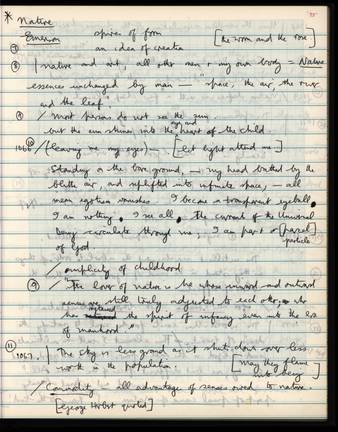 * Nature
Emerson spires of form
(7) an idea of creation [the worm and the rose]
(8) / nature and art, all other men & my own body = Nature
essences unchanged by man — "space, the air, the river
and the leaf".
(9) / Most persons do not see the sun.
but the sun shines into the eye and heart of the child
1066 (10) / (leaving me my eyes) — [let light attend me]
Standing on the bare ground, — my head bathed by the
blithe air, and uplifted into infinite space, — all
mean egotism vanishes. I become a transparent eyeball.
I am nothing. I see all. The currents of the Universal
Being circulate through me; I am part or [parcel]
of God particle
/ simplicity of childhood
(9) / "The lover of nature is he whose inward and outward
senses are still truly adjusted to each other; who
has retained the spirit of infancy even into the era
of manhood"
(11) 1067. / The sky is less grand as it shuts down over less
worth in the population. [may they flame
into being]
/ Commodity — all advantage of senses owed to nature.
[George Herbert quoted]